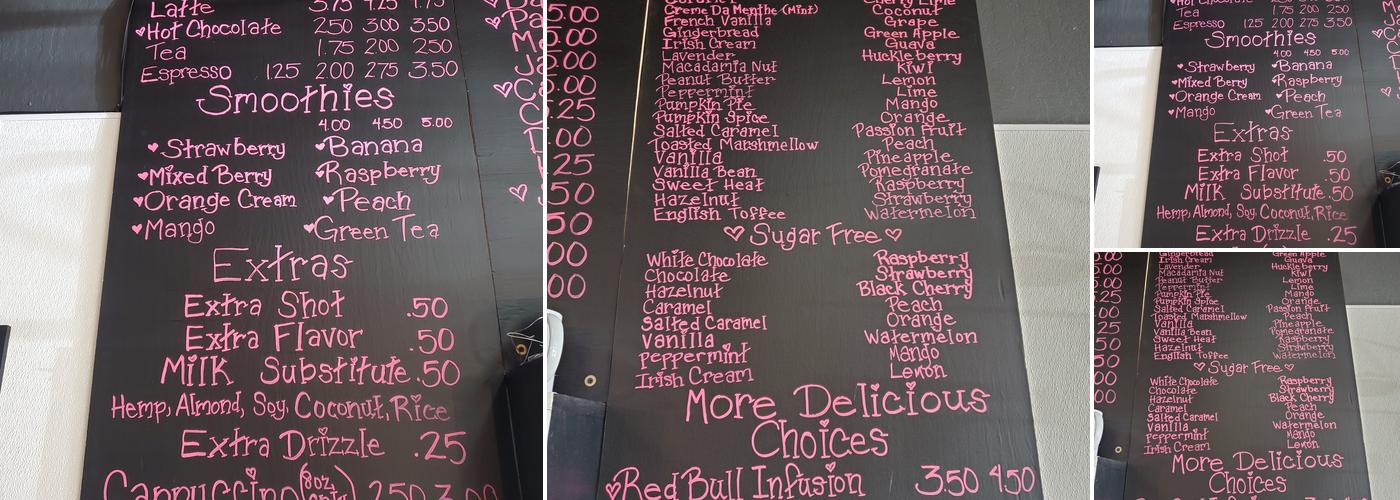 Latte 3.75 4.25 4.75
Hot Chocolate 250 3.00 3.50
Tea 1.75 200 250
Espresso 1.25 2.00 275 3.50
Smoothies
4.00 4.50 5.00
Strawberry Banana
Mixed Berry Raspberry
Orange Cream Peach
Mango Green Tea
Extras
Extra Shot .50
Extra Flavor .50
Milk Substitute .50
Hemp, Almond, Soy, Coconut, Rice
Extra Drizzle .25
Cappuccino (8oz only) 2.50 3.00
5.00
5.00
5.00
5.00
5.25
.00
.25
50
50
00
00
Creme Da Menthe (Mint) Coconut
French Vanilla Grape
Gingerbread Green Apple
Irish Cream Guava
Lavender Huckleberry
Macadamia Nut Kiwi
Peanut Butter Lemon
Peppermint Lime
Pumpkin Pie Mango
Pumpkin Spice Orange
Salted Caramel Passion Fruit
Toasted Marshmellow Peach
Vanilla Pineapple
Vanilla Bean Pomegranate
Sweet Heat Raspberry
Hazelnut Strawberry
English Toffee Watermelon
Sugar Free
White Chocolate Raspberry
Chocolate Strawberry
Hazelnut Black Cherry
Caramel Peach
Salted Caramel Orange
Vanilla Watermelon
Peppermint Mango
Irish Cream Lemon
More Delicious
Choices
Red Bull Infusion 3.50 4.50
Hot Chocolate 250 3.00 3.50
Tea 1.75 200 250
Espresso 1.25 2.00 275 3.50
Smoothies
4.00 4.50 5.00
Strawberry Banana
Mixed Berry Raspberry
Orange Cream Peach
Mango Green Tea
Extras
Extra Shot .50
Extra Flavor .50
Milk Substitute .50
Hemp, Almond, Soy, Coconut, Rice
Extra Drizzle .25
Gingerbread Green Apple
Irish Cream Guava
Lavender Huckleberry
Macadamia Nut Kiwi
Peanut Butter Lemon
Peppermint Lime
Pumpkin Pie Mango
Pumpkin Spice Orange
Salted Caramel Passion Fruit
Toasted Marshmellow Peach
Vanilla Pineapple
Vanilla Bean Pomegranate
Sweet Heat Raspberry
Hazelnut Strawberry
English Toffee Watermelon
Sugar Free
White Chocolate Raspberry
Chocolate Strawberry
Hazelnut Black Cherry
Caramel Peach
Salted Caramel Orange
Vanilla Watermelon
Peppermint Mango
Irish Cream Lemon
More Delicious
Choices